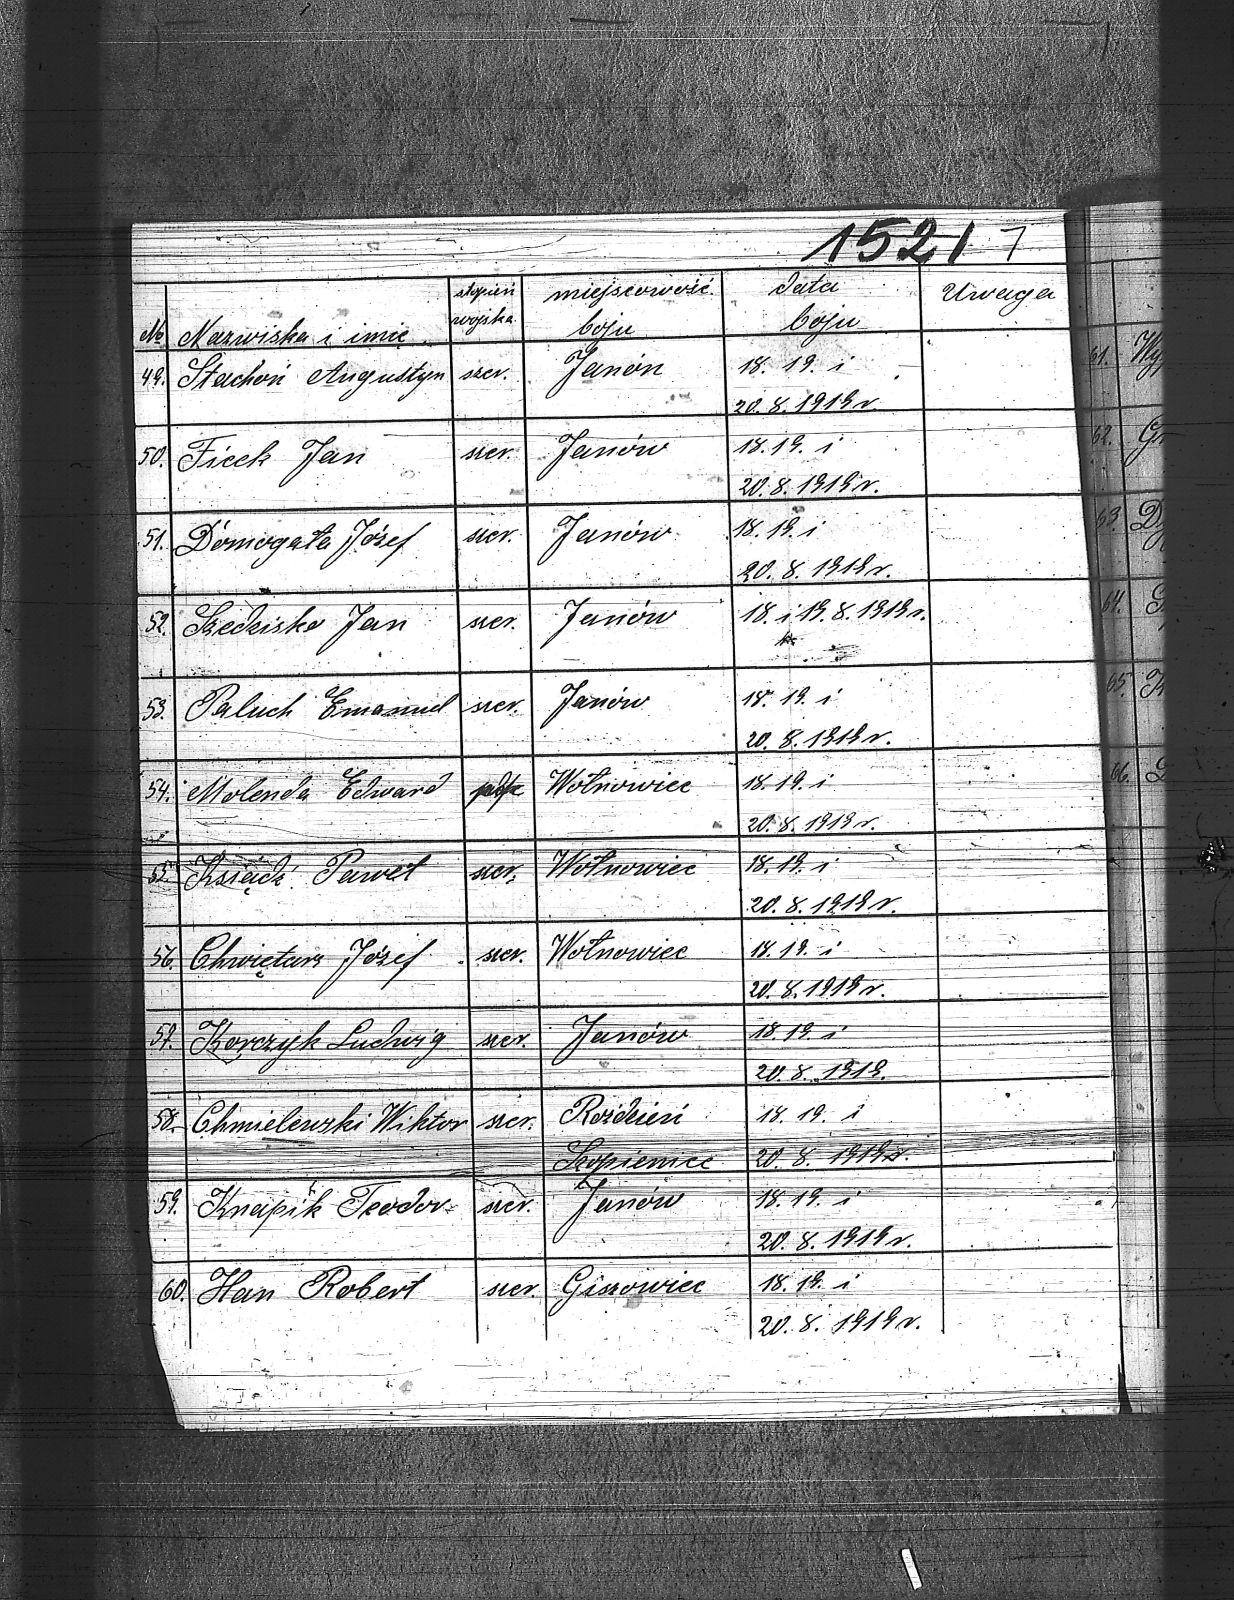 1521 7
№ Nazwiska i imię stopień wojska miejscowość boju data boju Uwaga
49. Stachoń Augustyn szer. Janón 18. 19. i
20. 8. 1919 r.
50. Ficek Jan szer. Janów 18. 19. i
20. 8. 1919 r.
51. Domogała Józef szer. Janów 18. 19. i
20. 8. 1919 r.
52. Jan szer. Janów 18. i 19. 8. 1919 r.
53. Paluch Emanuel szer. Janów 18. 19. i
20. 8. 1919 r.
54. Molenda Edward Wołnowiec 18. 19. i
20. 8. 1919 r.
55. Ksiądź Paweł szer. Wołnowiec 18. 19. i
20. 8. 1919 r.
56. Józef szer. Wołnowiec 18. 19. i
20. 8. 1919 r.
57. Korczyk Ludwig szer. Janów 18. 19. i
20. 8. 1919.
58. Chmielewski Wiktor szer. Roździeń 18. 19. i
Szopienice 20. 8. 1919 r.
59. Knapik Teodor szer. Janów 18. 19. i
20. 8. 1919 r.
60. Han Robert szer. Giszowiec 18. 19. i
20. 8. 1919 r.
61.
62.
63.
64.
65.
66.